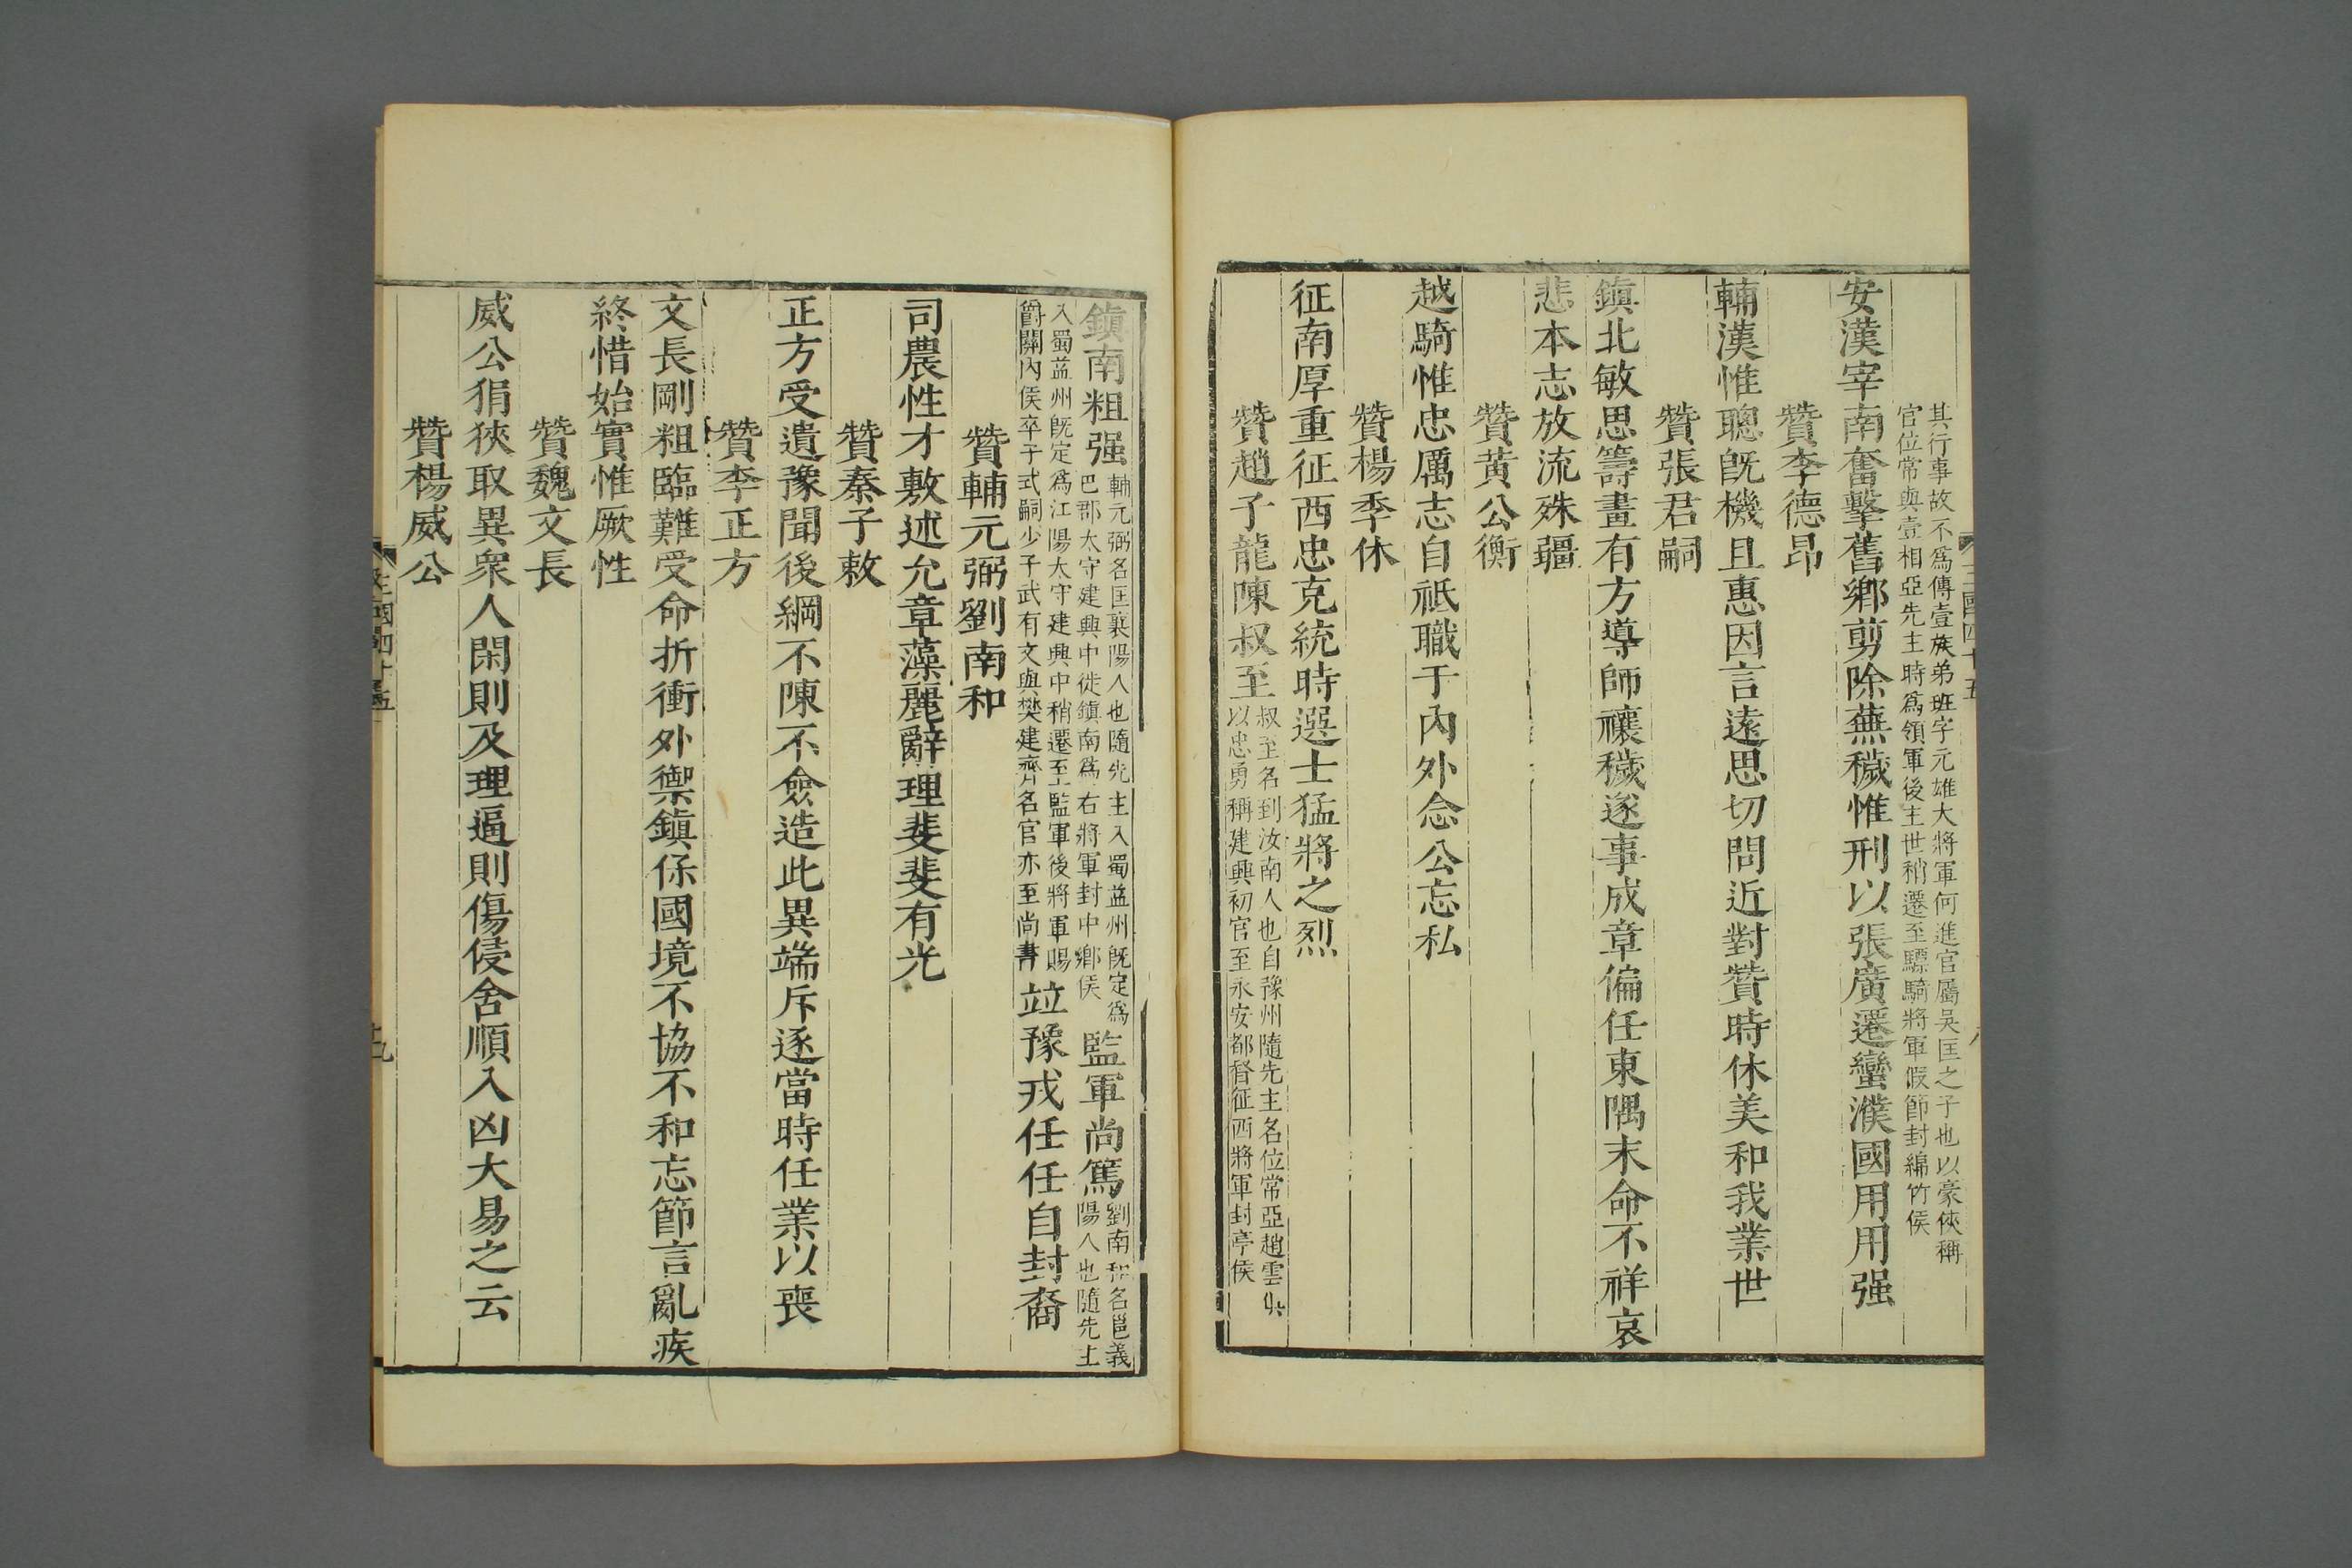 其行事故不爲傳壹族弟班字元雄大將軍何進官屬吳匡之子也以豪俠稱
官位常與壹相亞先主時爲領軍後主世稍遷至驃騎將軍假節封綿竹侯
安漢宰南奮擊舊鄉剪除蕪穢惟刑以張廣遷蠻濮國用用强
贊李德昂
輔漢惟聰旣機且惠因言遠思切問近對贊時休美和我業世
贊張君嗣
鎮北敏思籌畫有方導師禳穢遂事成章偏任東隅末命不祥哀
悲本志放流殊疆
贊黃公衡
越騎惟忠厲志自祗職于內外念公忘私
贊楊季休
征南厚重征西忠克統時選士猛將之烈
贊趙子龍陳叔至
叔至名到汝南人也自豫州隨先主名位常亞趙雲俱
以忠勇稱建興初官至永安都督征西將軍封亭侯
鎮南粗强
輔元弼名匡襄陽人也隨先主入蜀益州旣定爲
巴郡太守建興中徙鎮南爲右將軍封中鄉侯
監軍尚篤
劉南和名邕義
陽人也隨先主
入蜀益州旣定爲江陽太守建興中稍遷至監軍後將軍賜
爵關內侯卒子式嗣少子武有文與樊建齊名官亦至尚書
竝豫戎任任自封裔
贊輔元弼劉南和
司農性才敷述允章藻麗辭理斐斐有光
贊秦子敕
正方受遺豫聞後綱不陳不僉造此異端斥逐當時任業以喪
贊李正方
文長剛粗臨難受命折衝外禦鎮保國境不協不和忘節言亂疾
終惜始實惟厥性
贊魏文長
威公狷狹取異衆人閑則及理逼則傷侵舍順入凶大易之云
贊楊威公